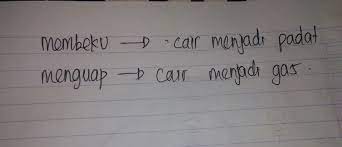 mombeku → cair menjadi padat
menguap → cair menjadi gas.